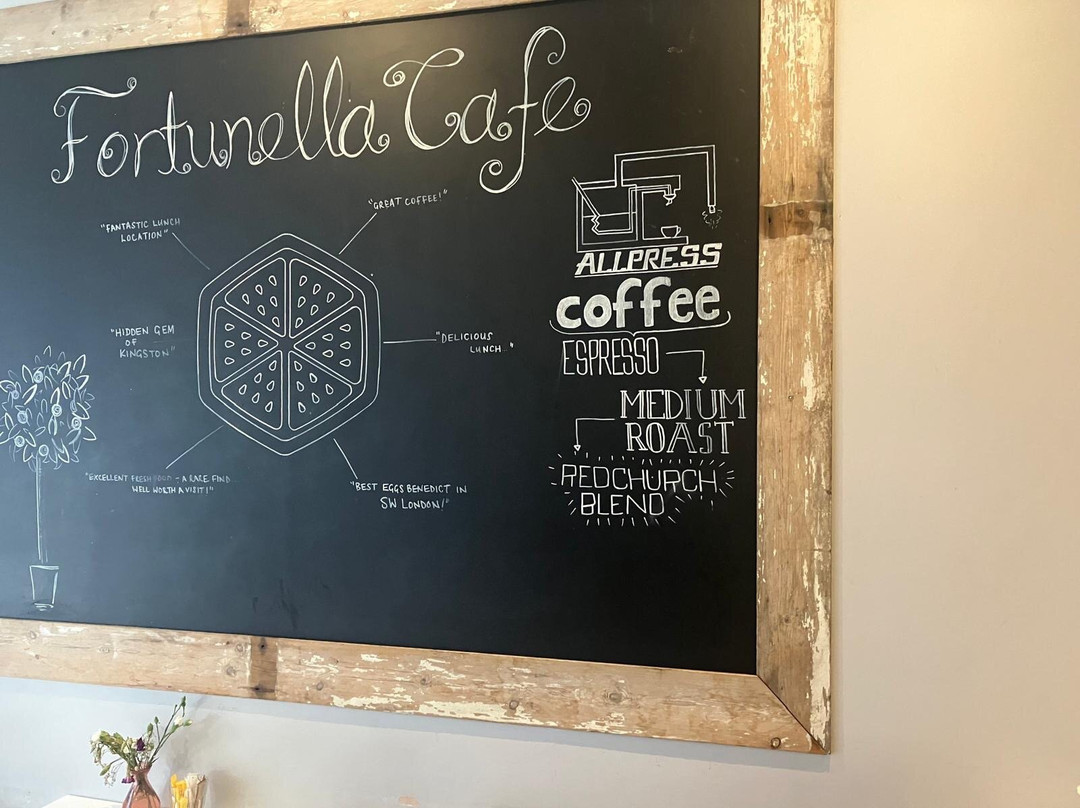 Fortunella Cafe
"FANTASTIC LUNCH
LOCATION"
"GREAT COFFEE!"
"HIDDEN GEM
OF
KINGSTON"
"DELICIOUS
LUNCH.."
"EXCELLENT FRESH FOOD - A RARE FIND
WELL WORTH A VISIT!"
"BEST EGGS BENEDICT IN
SW LONDON!"
ALLPRESS
coffee
ESPRESSO
MEDIUM
ROAST
REDCHURCH
BLEND